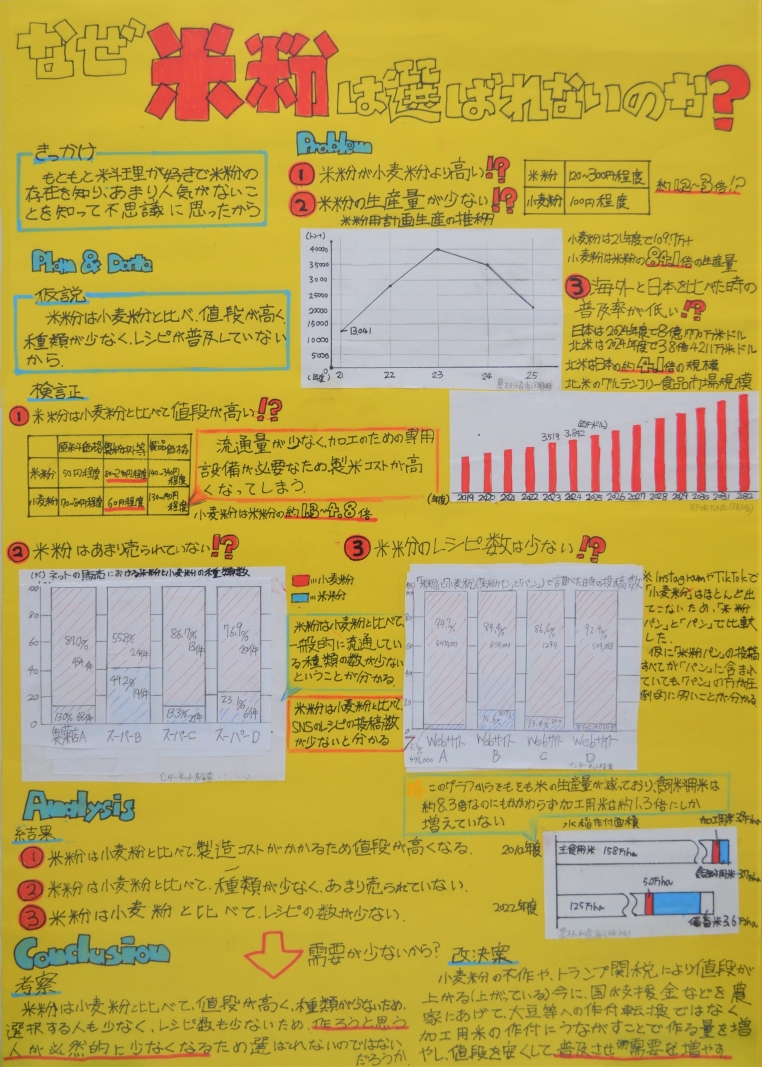 なぜ米粉は選ばれないのか?
きっかけ
もともと料理が好きで米粉の
存在を知り、あまり人気がないこ
とを知って不思議に思ったから
Plan & Data
仮説
米粉は小麦粉と比べ、値段が高く、
種類が少なく、レシピが普及していない
から.
Problem
① 米粉が小麦粉より高い!?
米粉 120~300円程度
小麦粉 100円程度
約1.2~3倍!?
② 米粉の生産量が少ない!?
米粉用計画生産の推移
(トン)
40000
35000
30000
25000
20000
15000
10000
5000
0
13,041
(年度) 21 22 23 24 25
小麦粉は米粉の84.1倍の生産量
③ 海外と日本を比べた時の
普及率が低い!?
北米は日本の約4.1倍の規模
北米のグルテンフリー食品市場規模
3,519 3,842
(年度) 2019 2020 2021 2022 2023 2024 2025 2026 2027 2028 2029 2030 2031 2032
検証
① 米粉は小麦粉と比べて値段が高い!?
米粉 50円程度
小麦粉 60円程度
流通量が少なく、加工のための専用
設備が必要なため、製米コストが高
くなってしまう.
小麦粉は米粉の約1.3~4.8倍
② 米粉はあまり売られていない!?
(%) ネットの販売における米粉と小麦粉の種類数
100
80
60
40
20
0
87.0%
13.0%
55.8% 24件
44.2% 19件
86.7% 13件
13.3% 2件
76.9% 20件
23.1% 6件
製菓店A スーパーB スーパーC スーパーD
■…小麦粉
■…米粉
米粉は小麦粉と比べて、
一般的に流通してい
る種類の数が少ない
ということが分かる.
米粉は小麦粉と比べ、
SNSのレシピの投稿数
が少ないと分かる
③ 米粉のレシピ数は少ない!?
Webサイト Webサイト Webサイト Webサイト
A B C D
※InstagramやTikTokで
「小麦粉」はほとんど出
てこないため、「米粉
パン」と「パン」で比較
した.
仮に「米粉パン」の投稿
すべてが「パン」に含まれ
ていても「パン」の方が圧
倒的に多いことが分かる
Analysis
結果
① 米粉は小麦粉と比べて、製造コストがかかるため値段が高くなる.
② 米粉は小麦粉と比べて、種類が少なく、あまり売られていない.
③ 米粉は小麦粉と比べて、レシピの数が少ない.
このグラフからそもそも米の生産量が減っており、飼料用米は
約8.3倍なのにもかかわらず加工用米は約1.3倍にしか
増えていない
水稲作付面積
2010年度
主食用米 158万ha
2022年度
125万ha
5.0万ha
備蓄米3.6万ha
Conclusion
需要が少ないから?
考察
米粉は小麦粉と比べて、値段が高く、種類が少ないため、
選択する人も少なく、レシピ数も少ないため、作ろうと思う
人が必然的に少なくなるため選ばれないのではない
だろうか.
改決案
小麦粉の不作や、トランプ関税により値段が
上がる(上がっている)今に、国が支援金などを農
家にあげて、大豆等への作付転換ではなく
加工用米の作付にうながすことで作る量を増
やし、値段を安くして普及させ需要を増やす